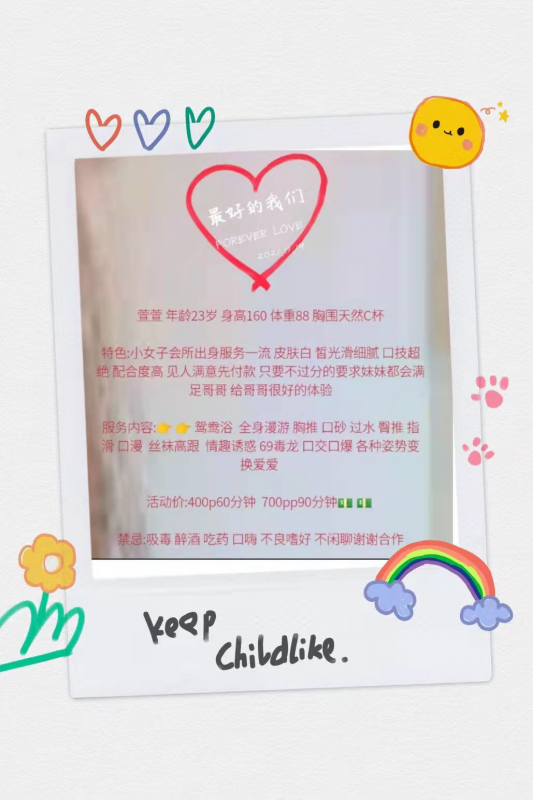 最好的我们
FOREVER LOVE
萱萱 年龄23岁 身高160 体重88 胸围天然C杯
特色:小女子会所出身服务一流 皮肤白 皙光滑细腻 口技超
绝 配合度高 见人满意先付款 只要不过分的要求妹妹都会满
足哥哥 给哥哥很好的体验
服务内容:👉👉 鸳鸯浴 全身漫游 胸推 口砂 过水 臀推 指
滑 口漫 丝袜高跟 情趣诱惑 69毒龙 口交口爆 各种姿势变
换爱爱
活动价:400p60分钟 700pp90分钟💵💵
禁忌:吸毒 醉酒 吃药 口嗨 不良嗜好 不闲聊谢谢合作
keep
childlike.